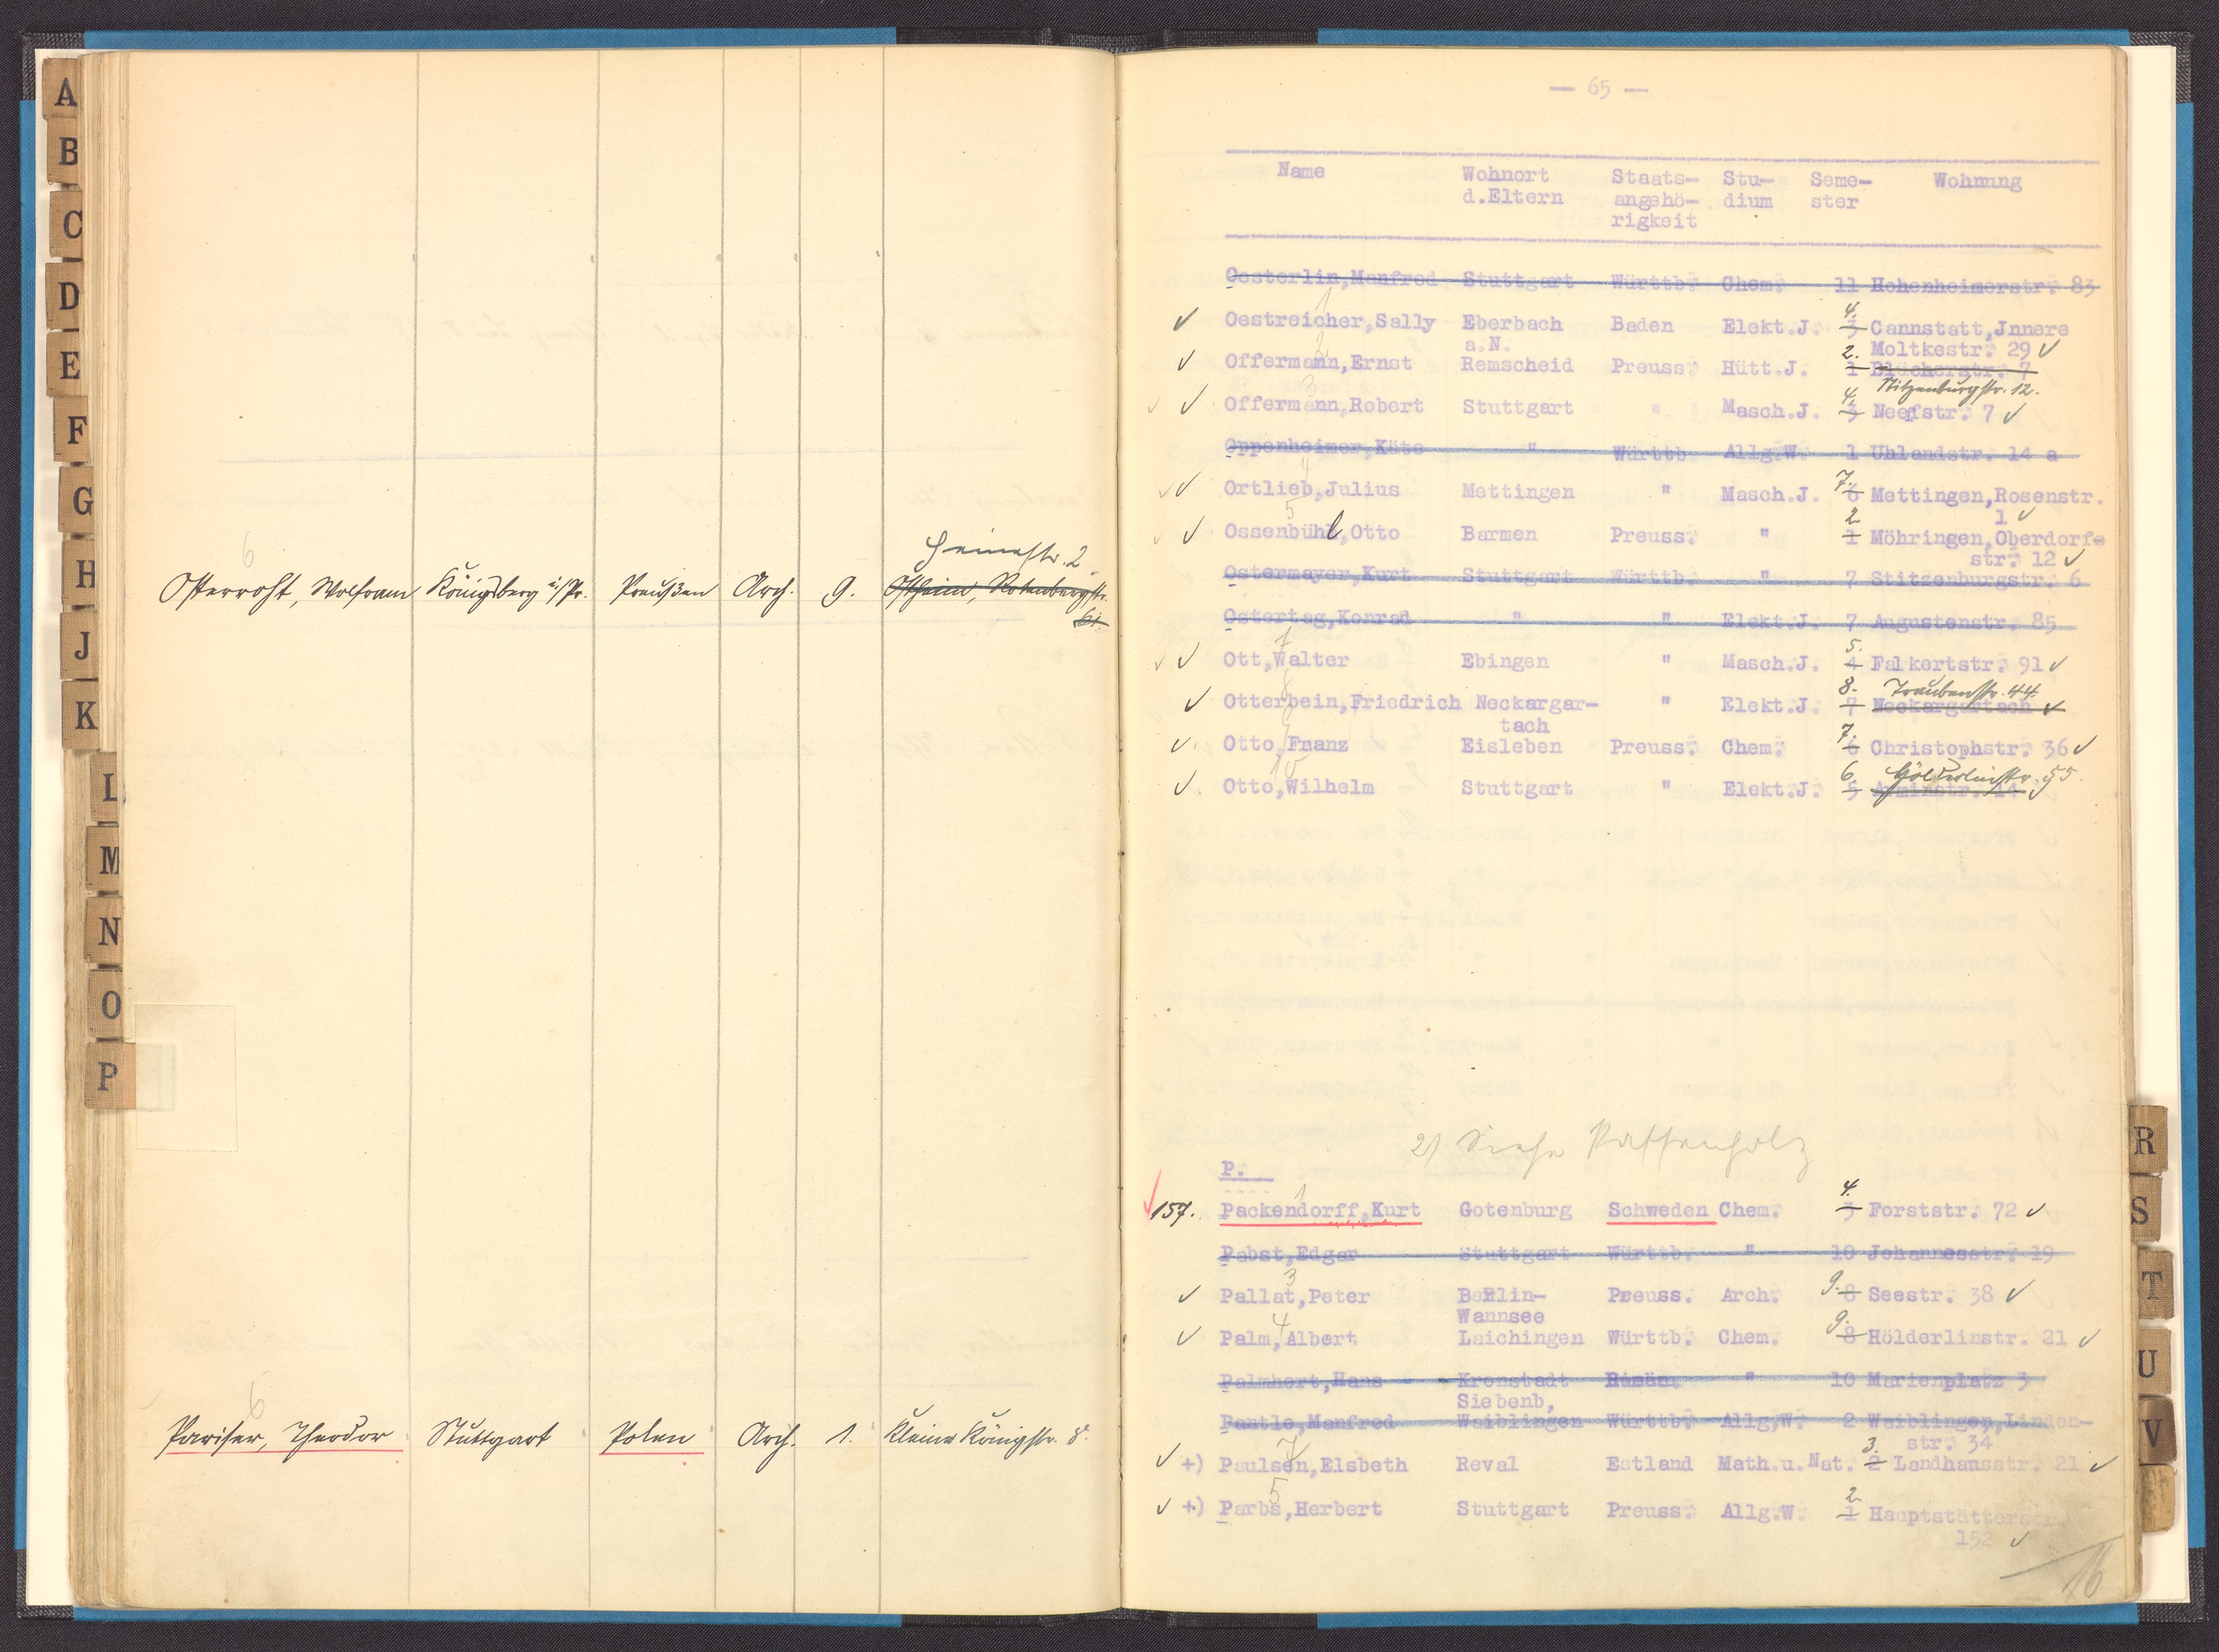 A
B
C
D
E
F
G
H
J
K
L
M
N
O
P
6
Heinestr. 2
Osterroht, Wolfram Königsberg i/Pr. Preußen Arch. 9. Ostheim, Rotenbergstr.
61.
6
Pariser, Theodor Stuttgart Polen Arch. 1. Kleine Königstr. 8.
— 65 —
Name Wohnort Staats- Stu- Seme- Wohnung
d.Eltern angehö- dium ster
rigkeit
Oesterlin,Manfred Stuttgart Württb. Chem. 11 Hohenheimerstr. 83
1 4.
Oestreicher,Sally Eberbach Baden Elekt.J. 3 Cannstatt,Jnnere
a.N. Moltkestr. 29
2 2.
Offermann,Ernst Remscheid Preuss. Hütt.J. 1 Blücherstr. 7
Stitzenburgstr. 12.
3 4.
Offermann,Robert Stuttgart " Masch.J. 3 Neefstr. 7
Oppenheimer,Käte " Württb Allg.W. 1 Uhlandstr. 14 a
4 7.
Ortlieb,Julius Mettingen " Masch.J. 6 Mettingen,Rosenstr.
1
5 2
Ossenbühl,Otto Barmen Preuss. " 1 Möhringen,Oberdorfe
str. 12
Ostermayer,Kurt Stuttgart Württb. " 7 Stitzenburgstr. 6
Ostertag,Konrad " " Elekt.J. 7 Augustenstr. 85
7 5.
Ott,Walter Ebingen " Masch.J. 4 Falkertstr. 91
8 8. Traubenstr. 44.
Otterbein,Friedrich Neckargar- " Elekt.J. 7 Neckargartach
tach
9 7.
Otto,Franz Eisleben Preuss. Chem. 6 Christophstr. 36
10 6. Hölderlinstr. 55.
Otto,Wilhelm Stuttgart " Elekt.J. 5 Arminstr. 14
2) Siehe Paffenholz
P.
1 4.
157. Packendorff,Kurt Gotenburg Schweden Chem. 3 Forststr. 72
Pabst,Edgar Stuttgart Württb. " 10 Johannesstr. 19
3 9.
Pallat,Peter Berlin- Preuss. Arch. 8 Seestr. 38
Wannsee
4 9.
Palm,Albert Laichingen Württb. Chem. 8 Hölderlinstr. 21
Palmhert,Hans Kronstadt Rumän. " 10 Marienplatz 3
Siebenb,
Pantle,Manfred Waiblingen Württb. Allg.W. 2 Waiblingen,Linden-
str. 34
7 3.
+) Paulsen,Elsbeth Reval Estland Math.u.Nat. 2 Landhausstr. 21
5 2
+) Parbs,Herbert Stuttgart Preuss. Allg.W. 1 Hauptstätterstr.
152
16
R
S
T
U
V